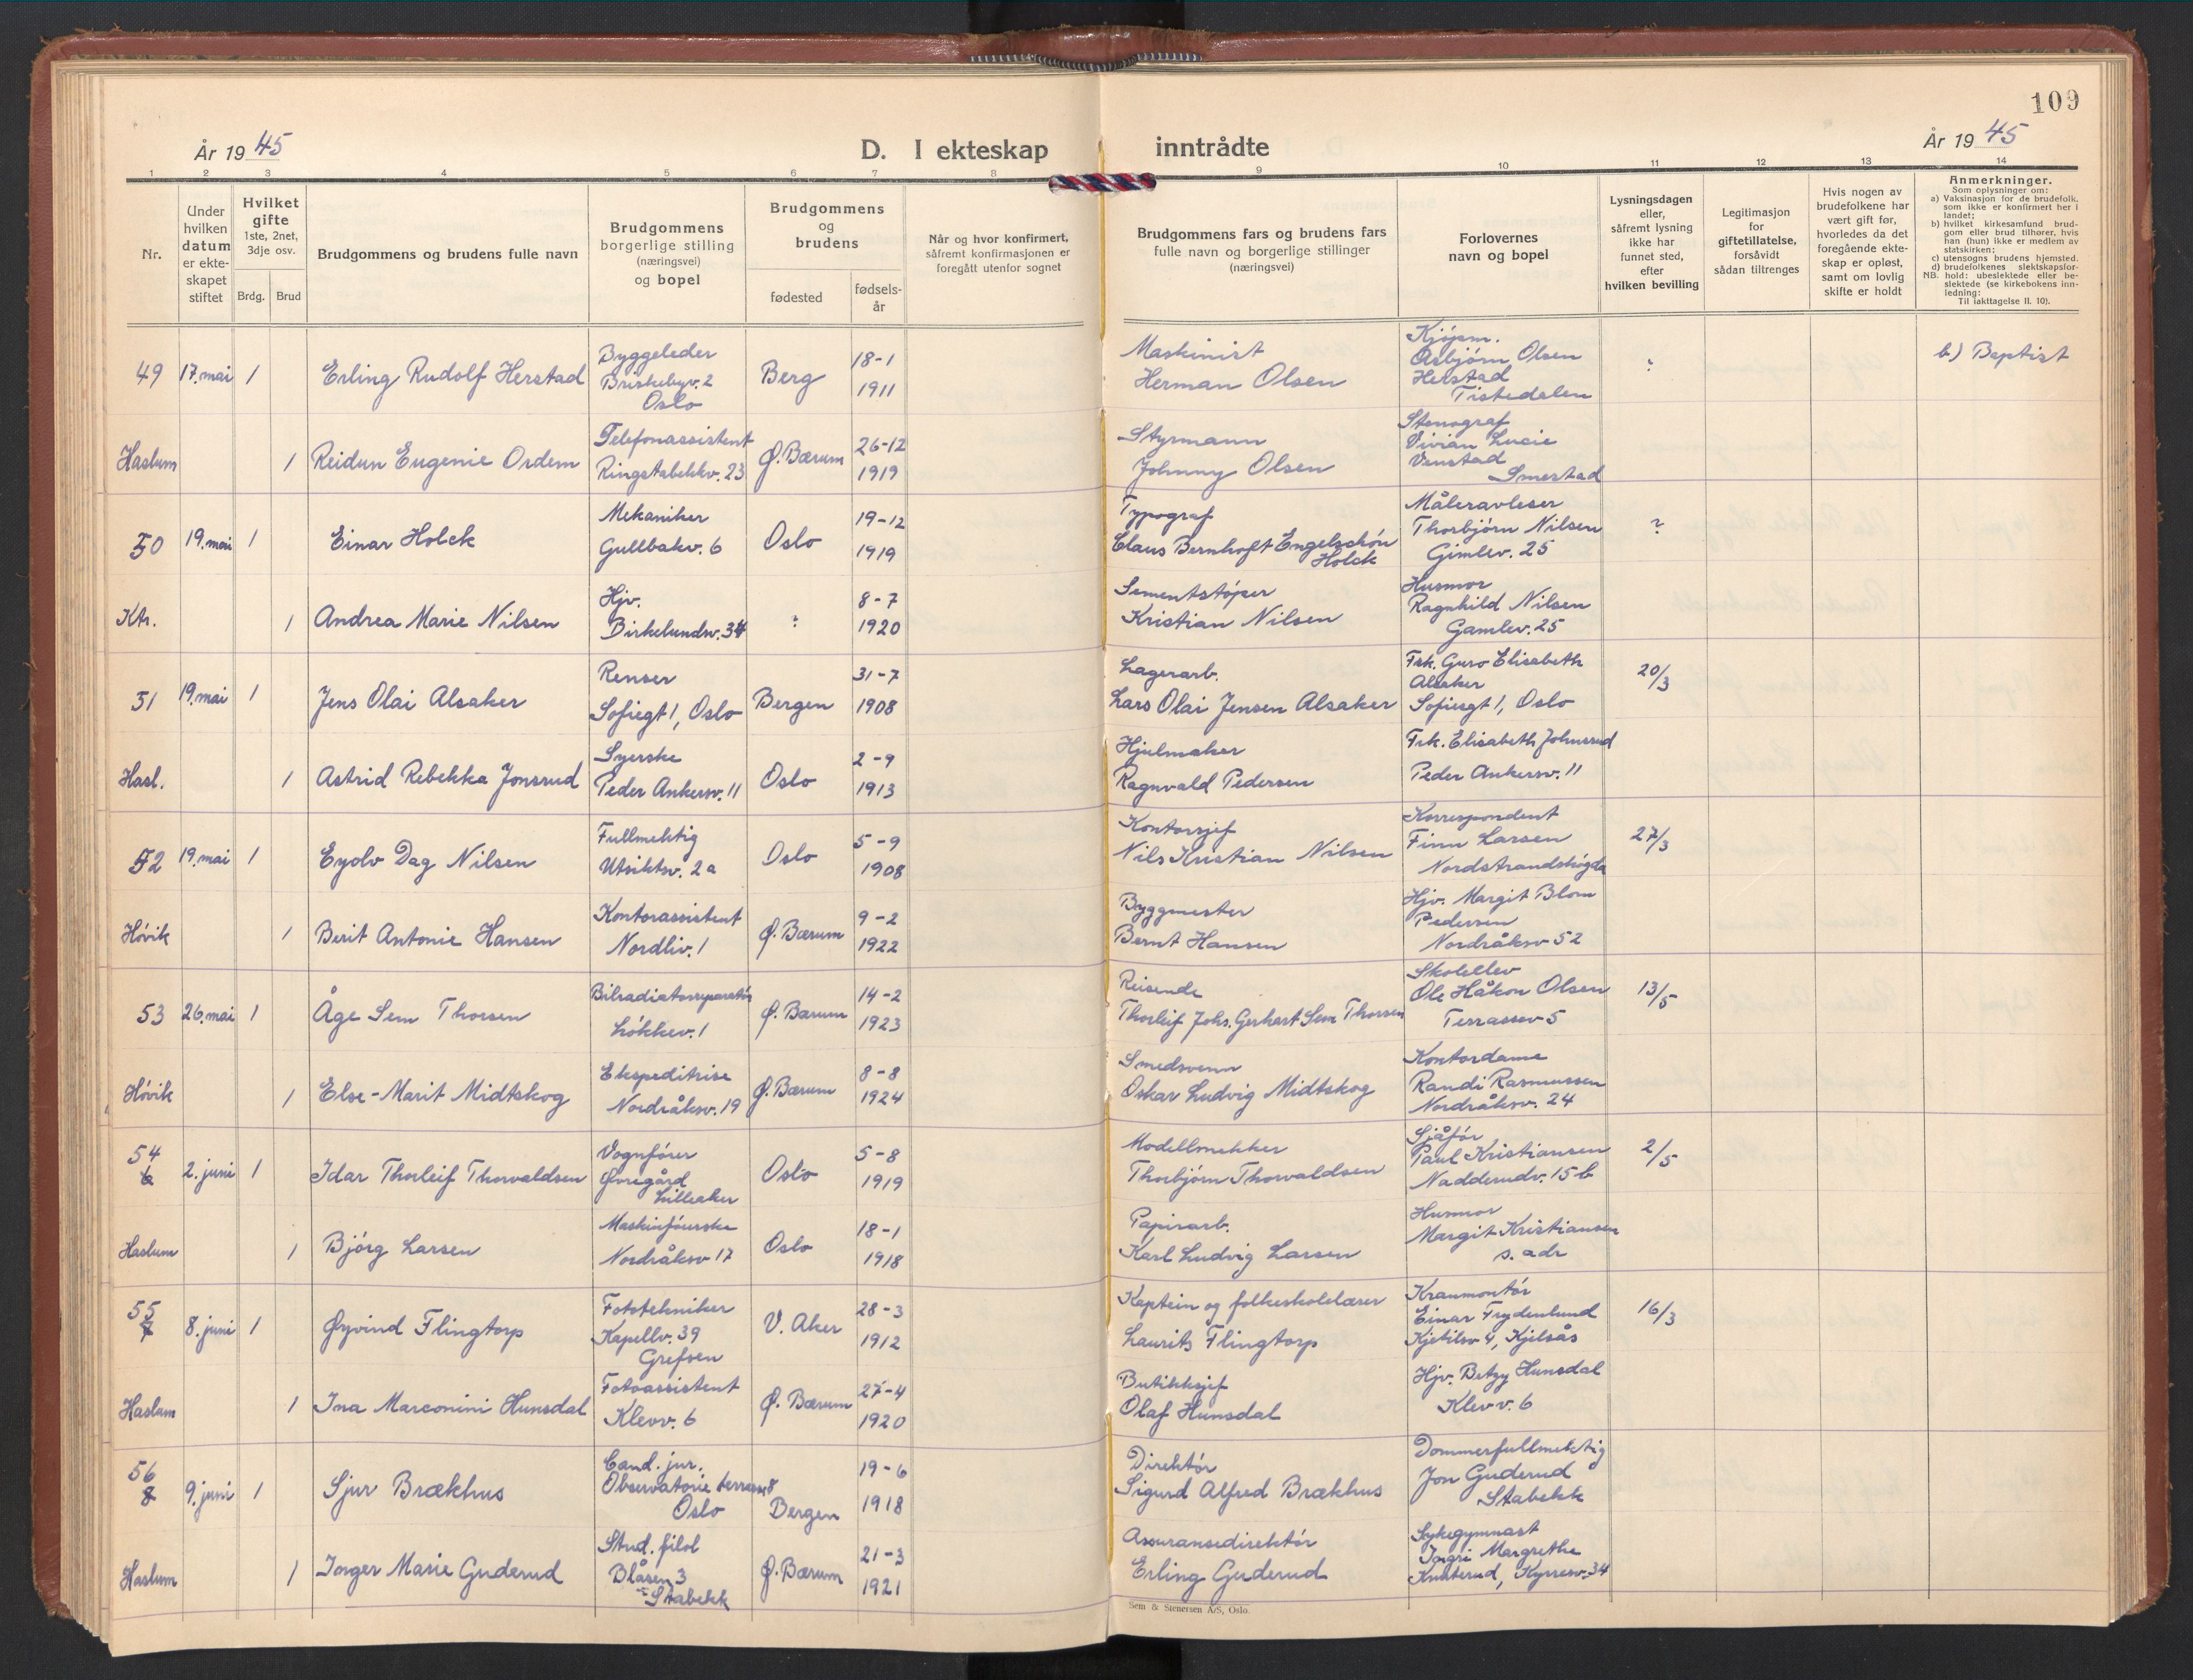 109
År 1945
D. I ekteskap inntrådte
År 1945
1 2 3 4 5 6 7 8 9 10 11 12 13 14
Nr.
Under
hvilken
datum
er ekte-
skapet
stiftet
Hvilket
gifte
1ste, 2net,
3dje osv.
Brdg. Brud
Brudgommens og brudens fulle navn
Brudgommens
borgerlige stilling
(næringsvei)
og bopel
Brudgommens
og
brudens
fødested
fødsels-
år
Når og hvor konfirmert,
såfremt konfirmasjonen er
foregått utenfor sognet
Brudgommens fars og brudens fars
fulle navn og borgerlige stillinger
(næringsvei)
Forlovernes
navn og bopel
Lysningsdagen
eller,
såfremt lysning
ikke har
funnet sted,
efter
hvilken bevilling
Legitimasjon
for
giftetillatelse,
forsåvidt
sådan tiltrenges
Hvis nogen av
brudefolkene har
vært gift før,
hvorledes da det
foregående ekte-
skap er opløst,
samt om lovlig
skifte er holdt
Anmerkninger.
Som oplysninger om:
a) Vaksinasjon for de brudefolk.
som ikke er konfirmert her i
landet;
b) hvilket kirkesamfund brud-
gom eller brud tilhører, hvis
han (hun) ikke er medlem av
statskirken;
c) utensogns brudens hjemsted.
d) brudefolkenes slektskapsfor-
NB. hold: ubeslektede eller be-
slektede (se kirkebokens inn-
ledning:
Til iakttagelse II. 10).
49 17. mai 1 Erling Rudolf Herstad
Byggeleder
Briskebyv. 2
Oslo
Berg
18-1
1911
Maskinist
Herman Olsen
Kjøpm.
Asbjørn Olsen
Herstad
Tistedalen
?
b) Baptist
Haslum 1 Reidun Eugenie Ordem
Telefonassistent
Ringstabekkv. 23
Ø. Bærum
26-12
1919
Styrmann
Johnny Olsen
Stenograf
Vivian Lucie
Venstad
Smestad
50 19. mai 1 Einar Holck
Mekaniker
Gullbakv. 6
Oslo
19-12
1919
Typograf
Claus Bernhoft Engelschøn
Holck
Måleravleser
Thorbjørn Nilsen
Gimlev. 25
?
Ktr. 1 Andrea Marie Nilsen
Hjv.
Birkelundv. 34
?
8-7
1920
Sementstøper
Kristian Nilsen
Husmor
Ragnhild Nilsen
Gamlev. 25
51 19. mai 1 Jens Olai Alsaker
Renser
Sofiegt 1, Oslo
Bergen
31-7
1908
Lagerarb.
Lars Olai Jensen Alsaker
Frk. Guro Elisabeth
Alsaker
Sofiesgt 1, Oslo
20/3
Hasl. 1 Astrid Rebekka Jonsrud
Syerske
Peder Ankersv. 11
Oslo
2-9
1913
Hjulmaker
Ragnvald Pedersen
Frk. Elisabeth Johnsrud
Peder Ankersv. 11
52 19. mai 1 Eyolv Dag Nilsen
Fullmektig
Utsiktsv. 2a
Oslo
5-9
1908
Kontorsjef
Nils Kristian Nilsen
Korrespondent
Finn Larsen
Nordstrandshøgda
27/3
Høvik 1 Berit Antonie Hansen
Kontorassistent
Nordliv. 1
Ø. Bærum
9-2
1922
Byggmester
Bernt Hansen
Hjv. Margit Blom
Pedersen
Nordråksv 52
53 26. mai 1 Åge Sem Thorsen
Bilradiatorreparatør
Løkkev. 1
Ø. Bærum
14-2
1923
Reisende
Thorleif Johs. Gerhart Sem Thorsen
Skoleelev
Ole Håkon Olsen
Terrassev 5
13/5
Høvik 1 Else-Marit Midtskog
Ekspeditrise
Nordråksv. 19
Ø. Bærum
8-8
1924
Smedsvenn
Oskar Ludvig Midtskog
Kontordame
Randi Rasmussen
Nordråksv. 24
54
6
2. juni 1 Idar Thorleif Thorvaldsen
Vognfører
Øvregård
Lilleaker
Oslo
5-8
1919
Modellmekker
Thorbjørn Thorvaldsen
Sjåfør
Paul Kristiansen
Nadderudv. 15 b
2/5
Haslum 1 Bjørg Larsen
Maskinførerske
Nordråksv 17
Oslo
18-1
1918
Papirarb.
Karl Ludvig Larsen
Husmor
Margit Kristiansen
s. adr
55
7
8. juni 1 Øyvind Flingtorp
Fototekniker
Kapellv. 39
Grefsen
V. Aker
28-3
1912
Kaptein og folkeskolelærer
Laurits Flingtorp
Kranmontør
Einar Frydenlund
Kjetilsv 4, Kjelsås
16/3
Haslum 1 Ina Marconini Hunsdal
Fotoassistent
Klevv. 6
Ø. Bærum
27-4
1920
Butikksjef
Olaf Hunsdal
Hjv. Betzy Hunsdal
Klevv. 6
56
8
9. juni 1 Sjur Brækhus
Cand. jur.
Observatorie terrasse 8
Oslo
Bergen
19-6
1918
Direktør
Sigurd Alfred Brækhus
Dommerfullmektig
Jon Guderud
Stabekk
Haslum 1 Inger Marie Guderud
Stud. filol
Blåsen 3
Stabekk
Ø. Bærum
21-3
1921
Assuransedirektør
Erling Guderud
Sykegymnast
Ingri Margrethe
Knaterud, Kyrresv. 34
Sem & Stenersen A/S, Oslo.